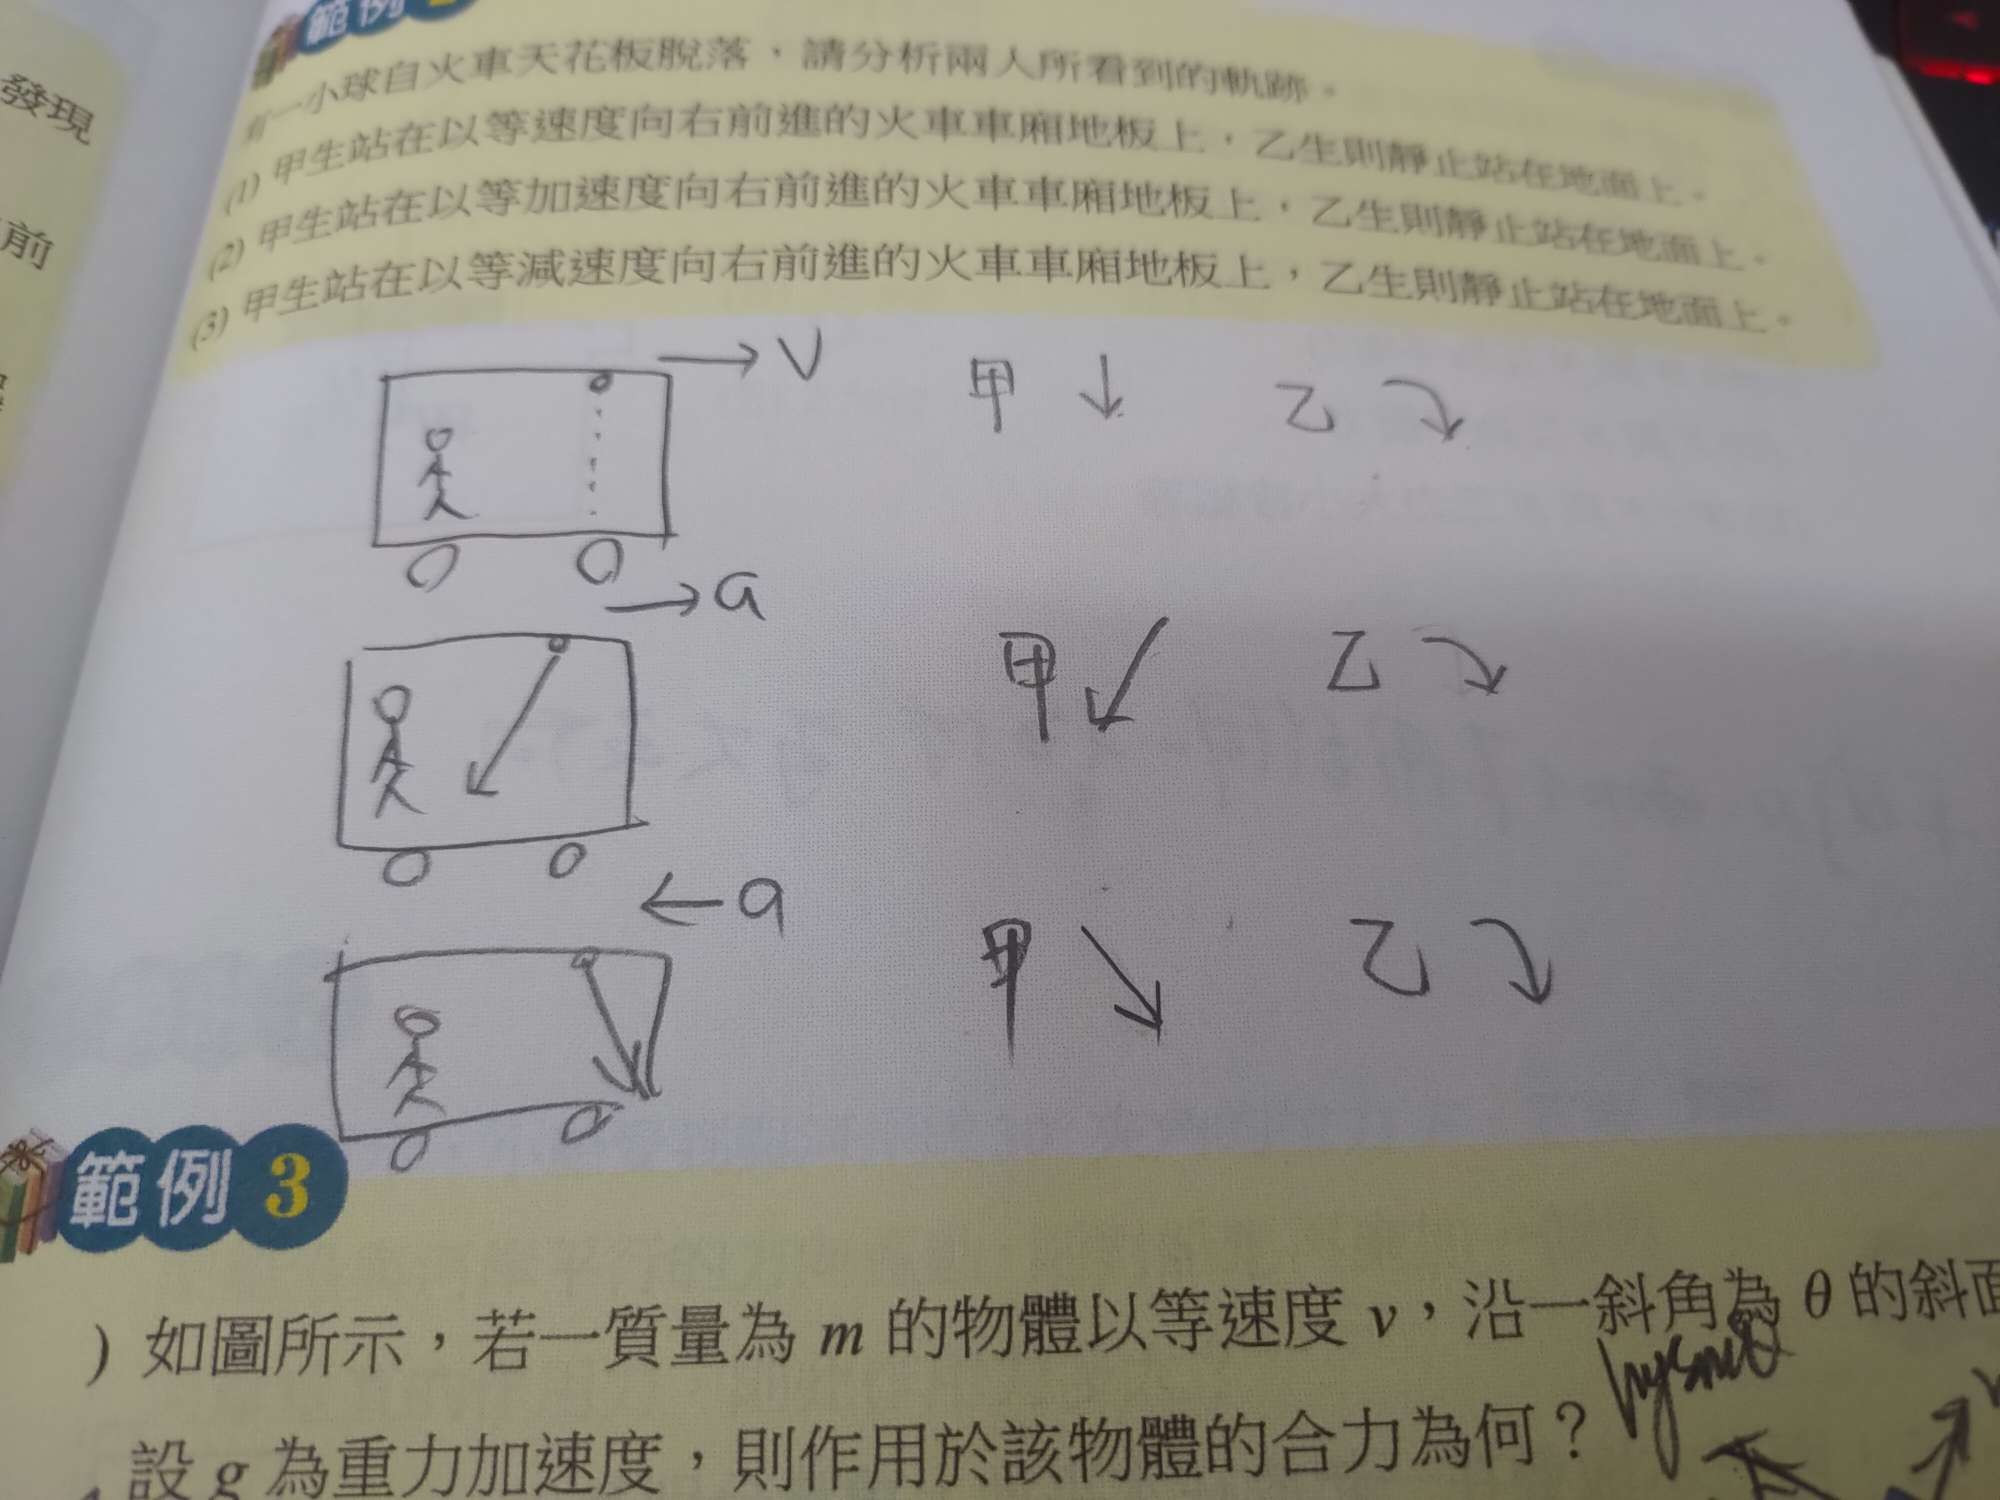 發現
前
範例
有一小球自火車天花板脫落，請分析兩人所看到的軌跡。
(1) 甲生站在以等速度向右前進的火車車廂地板上，乙生則靜止站在地面上。
(2) 甲生站在以等加速度向右前進的火車車廂地板上，乙生則靜止站在地面上。
(3) 甲生站在以等減速度向右前進的火車車廂地板上，乙生則靜止站在地面上。
→ V 甲 ↓ 乙
→ a
甲 ↙ 乙
← a
甲 ↘ 乙
範例 3
) 如圖所示，若一質量為 m 的物體以等速度 v，沿一斜角為 θ 的斜面
設 g 為重力加速度，則作用於該物體的合力為何？